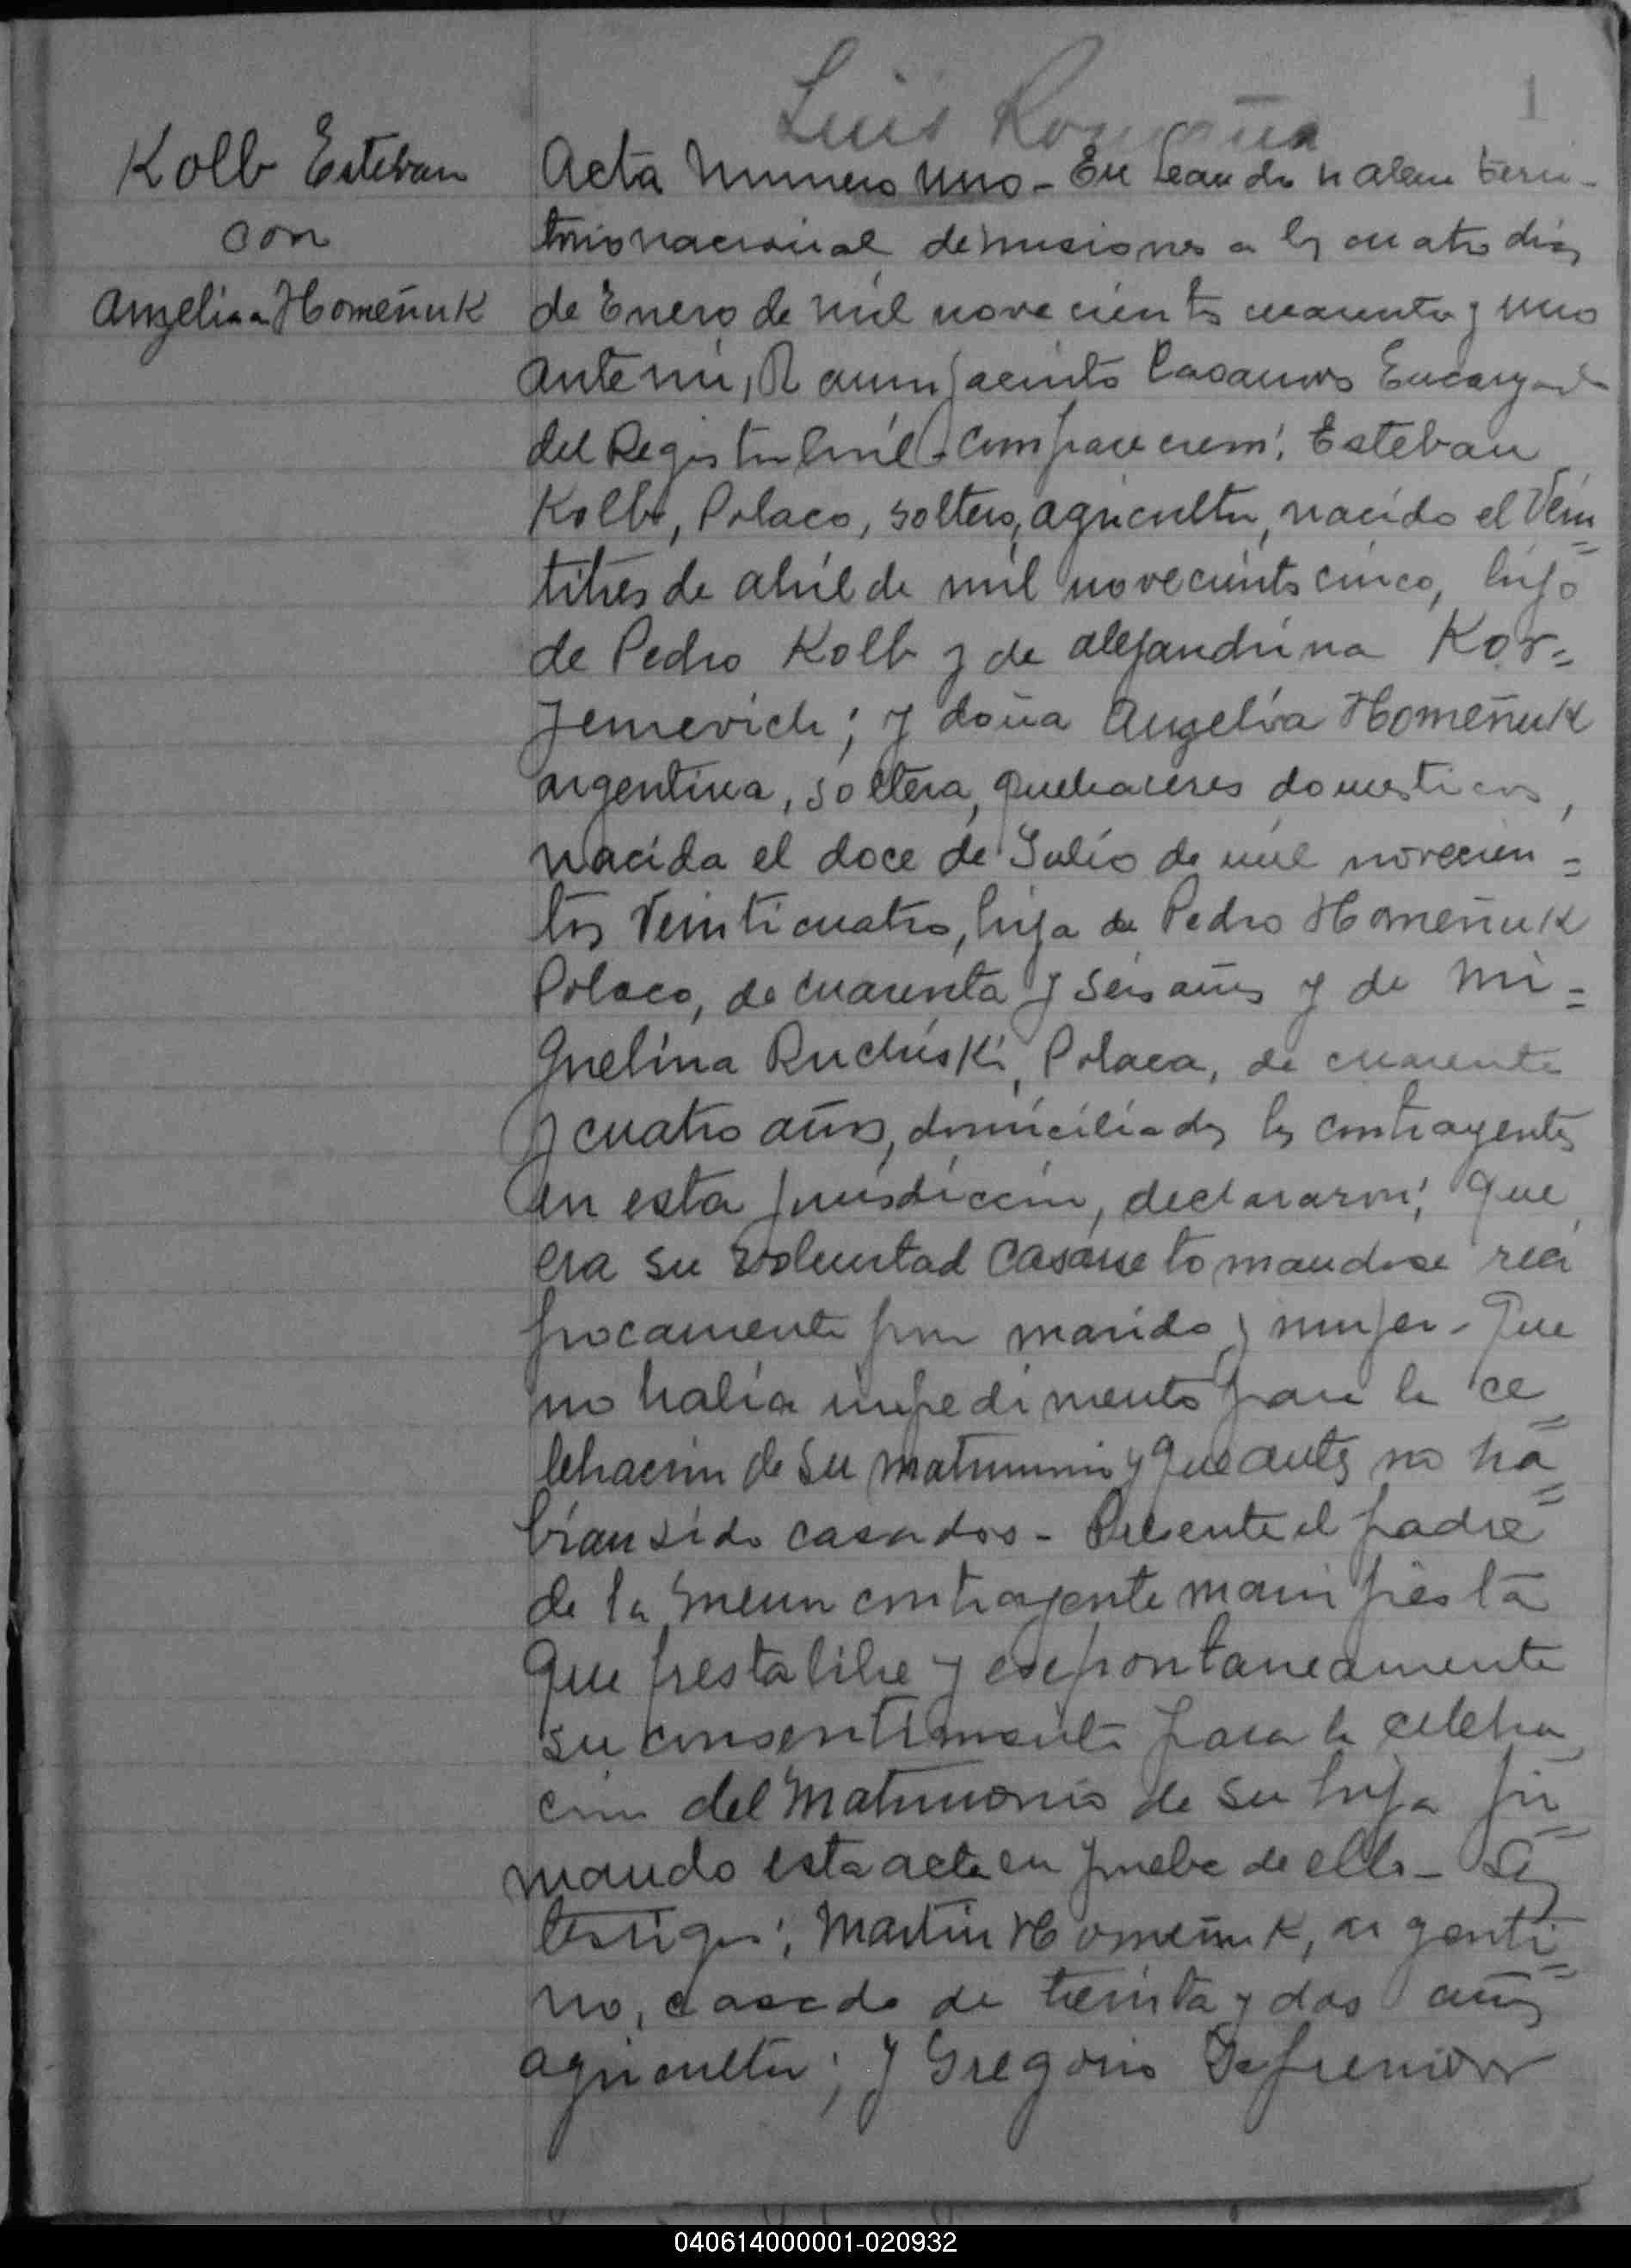 Luis
1
Kolb Esteban
con
Angelina Homeñuk
Acta Numero uno - En Leandro N alem terri-
torio nacional de misiones a los cuatro dias
de Enero de mil novecientos cuarenta y uno
ante mi, Ramon Jacinto Casanova Encargado
del Registro Civil - Comparecieron: Esteban
Kolb, Polaco, soltero, agricultor, nacido el Vein
titres de abril de mil novecientos cinco, hijo
de Pedro Kolb y de alejandrina Kor=
jenievich; y doña Angelina Homeñuk
argentina, soltera, quehaceres domesticos,
nacida el doce de Julio de mil novecien=
tos Veinticuatro, hija de Pedro Homeñuk
Polaco, de cuarenta y seis años y de Mi=
guelina Ruchiski, Polaca, de cuarenta
y cuatro años, domiciliados los contrayentes
en esta jurisdiccion, declararon: Que
era su voluntad casarse tomandose reci
procamente por marido y mujer - Que
no habia impedimento para la ce=
lebracion de su matrimonio y que antes no ha=
bian sido casados - Presente el padre
de la menor contrayente manifiesta
que presta libre y espontaneamente
su consentimiento para la celebra
cion del Matrimonio de su hija fir=
mando esta acta en prueba de ello - Los
testigos: Martin Homeñuk, argenti=
no, casado de treinta y dos años
agricultor; y Gregorio
040614000001-020932